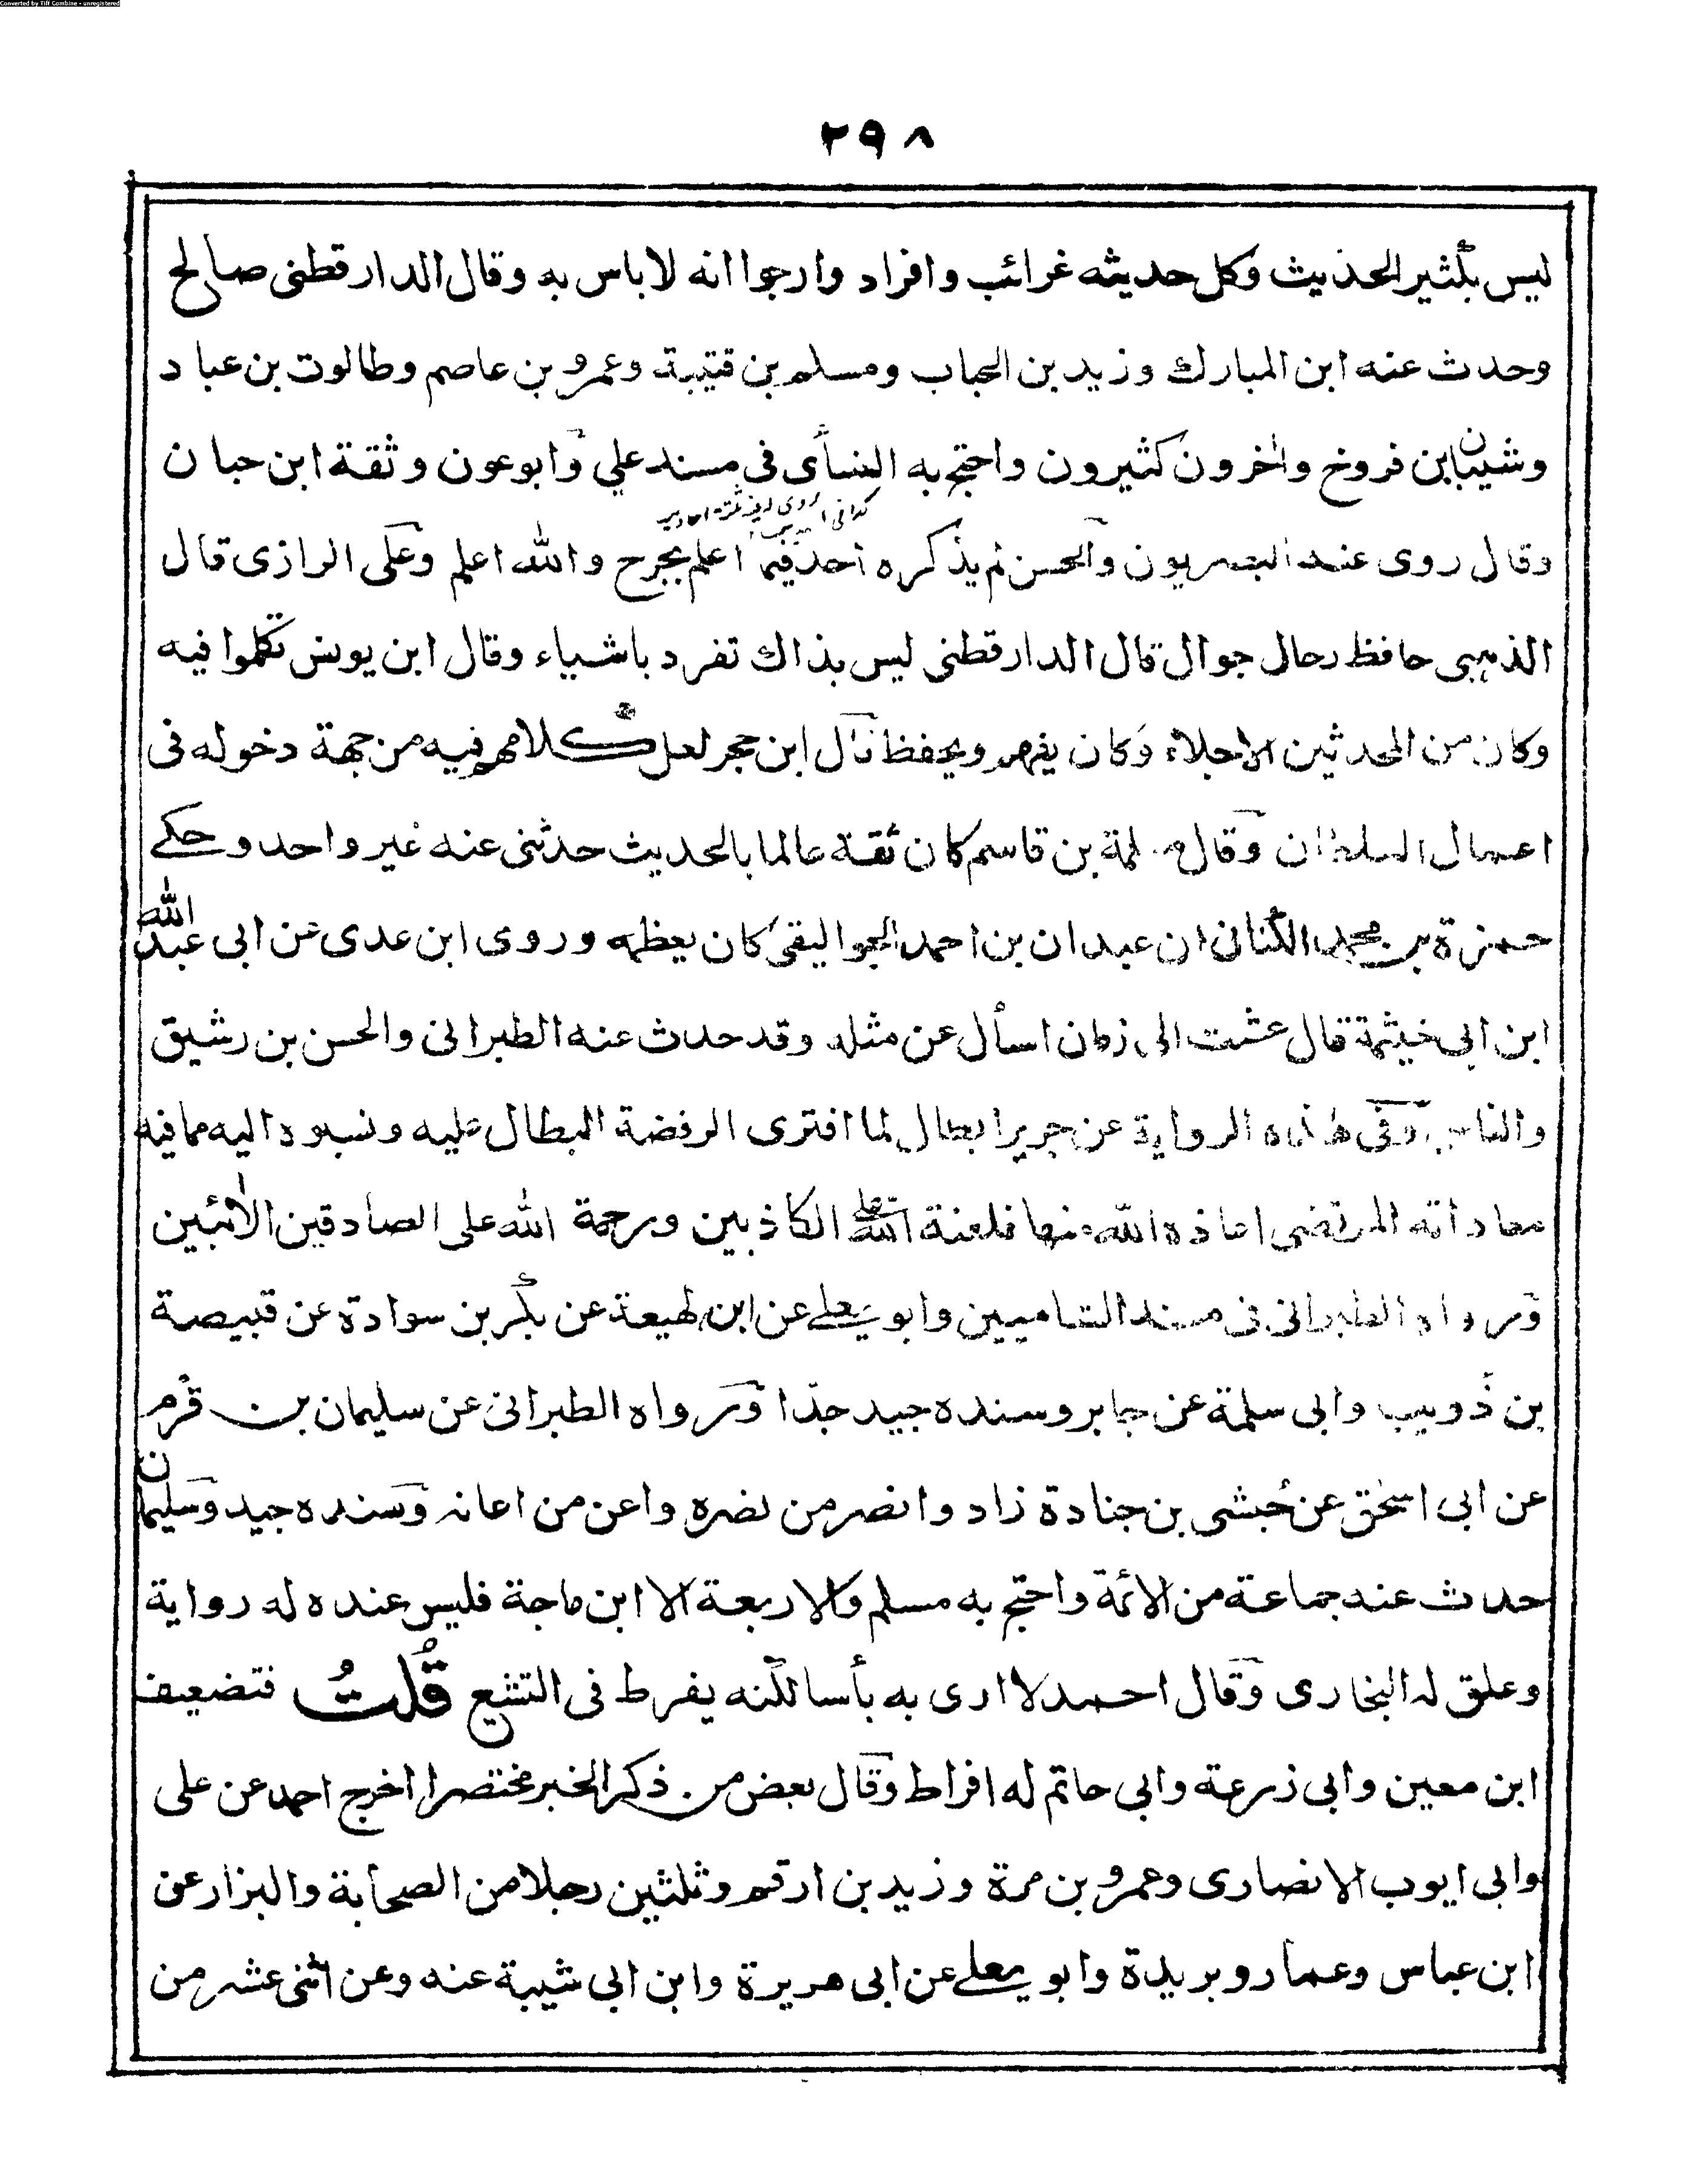 Converted by Tiff Combine - unregistered
٢٩٨
ليس بكثير الحديث وكل حديثه غرائب وافراد وارجوا انه لا باس به وقال الدارقطنى صالح
وحدث عنه ابن المبارك وزيد بن الحباب ومسلم بن قتيبة وعمرو بن عاصم وطالوت بن عباد
وشيبان ابن فروخ واخرون كثيرون واحتج به النسأى فى مسند علي وابو عون وثقة ابن حبان
وقال روى عنه البصريون والحسن لم يذكره احد فيما اعلم بجرح والله اعلم وعلى الرازى قال
الذهبى حافظ رحال جوال قال الدارقطنى ليس بذاك تفرد باشياء وقال ابن يونس تكلموا فيه
وكان من المحدثين الاجلاء وكان يفهم ويحفظ قال ابن حجر لعل كلامهم فيه من جهة دخوله فى
اعمال السلطان وقال مسلمة بن قاسم كان ثقة عالما بالحديث حدثنى عنه غير واحد وحكے
حمزة بن محمد الكنانى ان عبدان بن احمد الجواليقى كان يعظمه وروى ابن عدى عن ابى عبد الله
ابن ابى خيثمة قال عشت الى زمان اسأل عن مثله وقد حدث عنه الطبرانى والحسن بن رشيق
والناس وفى هذه الرواية عن جرير ابطال لما افترى الرفضة البطال عليه ونسبوه اليه مما فيه
معاداته المرتضى اعاذه الله منها فلعنة الله على الكاذبين ورحمة الله على الصادقين الاٰئبين
ورواه الطبرانى فى مسند الشاميين وابو يعلے عن ابن لهيعة عن بكر بن سوادة عن قبيصة
بن ذويب وابى سلمة عن جابر وسنده جيد جدّا ورواه الطبرانى عن سليمان بن قرم
عن ابى اسحٰق عن حُبشى بن جنادة زاد وانصر من نصره واعن من اعانه وسنده جيد وسليمان
حدث عنه جماعة من الائمة واحتج به مسلم والاربعة الا ابن ماجة فليس عنده له رواية
وعلق له البخارى وقال احمد لا ارى به بأسا لكنه يفرط فى التشيع قُلتُ فتضعيف
ابن معين وابى زرعة وابى حاتم له افراط وقال بعض من ذكر الخبر مختصرا اخرج احمد عن على
وابى ايوب الانصارى وعمرو بن مرة وزيد بن ارقم وثلثين رجلا من الصحابة والبزار عن
ابن عباس وعمار وبريدة وابو يعلے عن ابى هريرة وابن ابى شيبة عنه وعن اثنى عشر من